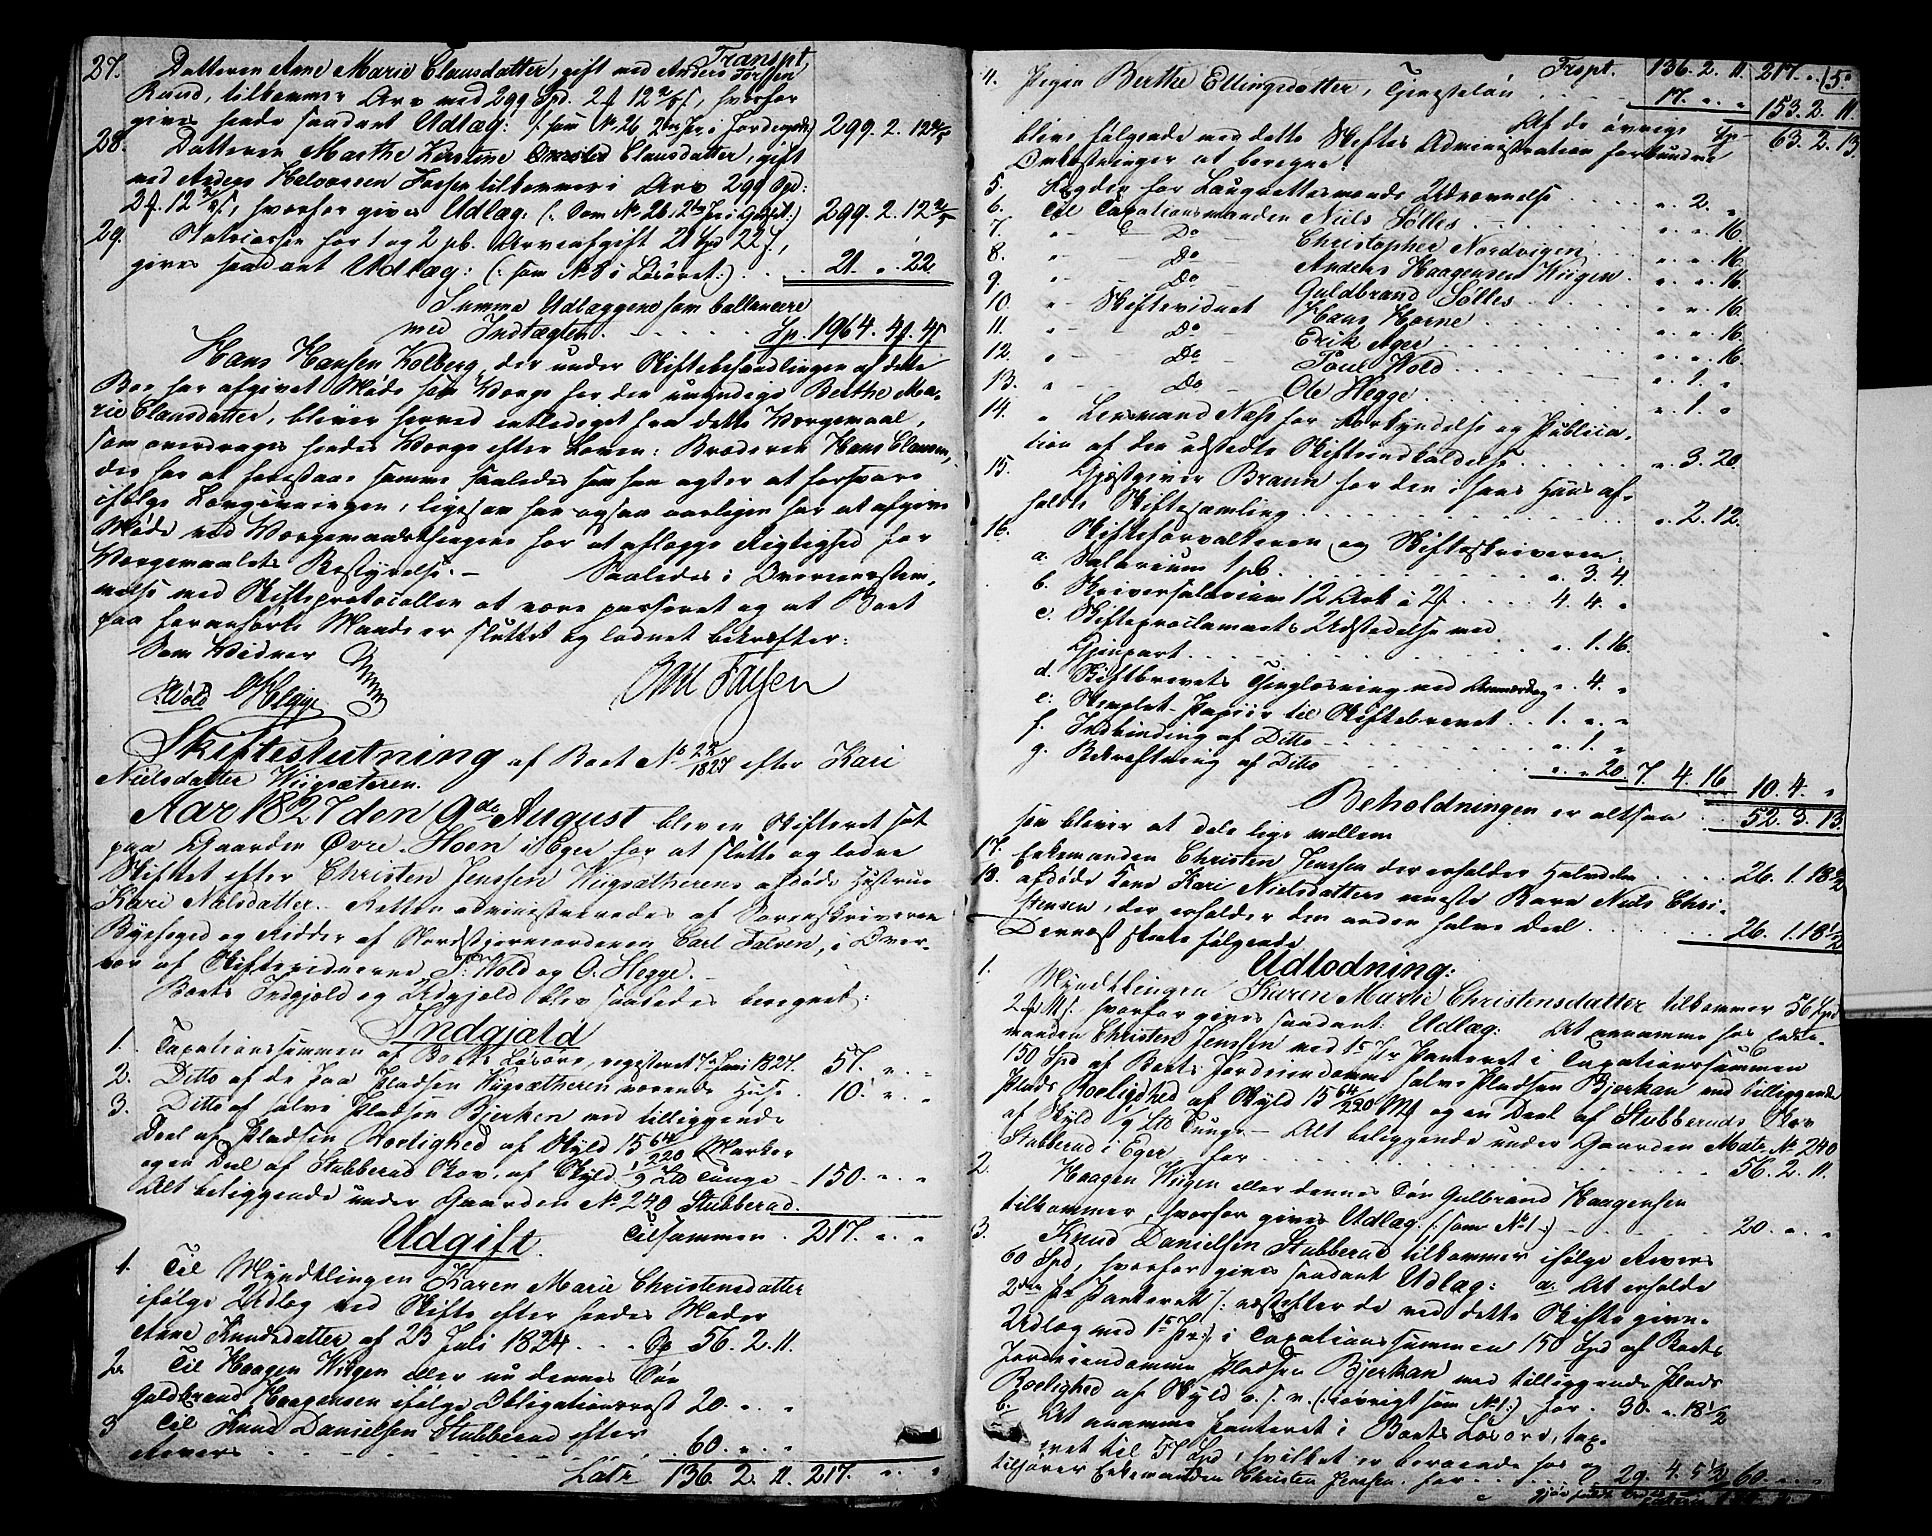 Transpt.
27. Datteren Anne Marie Clausdatter, gift med Anders Torssen
Rund, tilkommer Arv med 299 Spd. 2 12 2/5 s, hvorfor
gives hende saadant Udlæg: (: som No 26 2den Pr i Jordegodset :) 299. 2. 12 2/5
28. Datteren Marthe Kirstine Clausdatter, gift
med Anders Halvorsen Fossen tilkommer i Arv 299 Spd:
2 12 2/5 s, hvorfor gives Udlæg: (: Som No 26, 2den Pr i Godset :) 299. 2. 12 2/5
29. Statscassen for 1 og 2 pC. Arveafgift 21 Spd 22 s,
gives saadant Udlæg: (: som No 8 i Løsøret :) 21. " 22
Summa Udlæggene som ballancere
med Indtægten Sp. 1964. 4. 4 s
Hans Hansen Kolberg, der under Skiftebehandlingen af dette
Boe har afgivet Møde som Verge for den umyndige Berthe Ma-
rie Clausdatter, bliver herved entlediget fra dette Vergemaal,
som overdrages hendes Verge efter Loven: Broderen Hans Clausen,
der har at forestaae samme saaledes som han agter at forsvare
ifølge Lovgivningen, ligesom han ogsaa aarligen har at afgive
Møde ved Vergemaalsthingene for at aflægge Rigtighed for
Vergemaalets Bestyrelse. – Saaledes i Overeensstem-
melse med Skifteprotocollen at være passeret og at Boet
paa foranførte Maade er sluttet og lodnet bekræfter:
Som Vidner
P. Wold O Hegge Carl Falsen
Skifteslutning af Boet No 22/1827 efter Kari
Nielsdatter Wiigsæteren.
Aar 1827 den 9de August blev en Skifteret sat
paa Gaarden Øvre-Hoen i Eger for at slutte og lodne
Skiftet efter Christen Jenssen Wiigsætherens afdøde Hustrue
Kari Nielsdatter. Retten administreredes af Sorenskriveren
Byefoged og Ridder af Nordstjerneordenen Carl Falsen, i Over-
vær af Skiftevidnerne P. Wold og O. Hegge. –
Boets Indgjeld og Udgjeld blev saaledes beregnet:
Indgjæld
1. Taxationssummen af Boets Løsøre, registeret 7de Juni 1827. 57. " "
2. Ditto af de paa Pladsen Wiigsætheren værende Huse. 10. " "
3. Ditto af halve Pladsen Bjerken med tilliggende
Deel af Pladsen Roelighed af Skyld 15 64/220 Marker
og en Deel af Stubberud Skov, af Skyld 1/9 Lto Tunge
Alt beliggende under Gaarden No 240 Stubberud. 150. " "
Tilsammen. 217. " "
Udgift.
1. Til Myndtlingen Karen Marie Christensdatter
ifølge Udlæg ved Skifte efter hendes Moder
Anne Knudsdatter af 23 Juli 1824 Sp 56. 2. 11.
2. Til Haagen Wiigen eller nu dennes Søn
Guldbrand Haagensen ifølge Obligationsrest 20. " "
3 Til Knud Danielsen Stubberud efter
Revers 60. " "
Latr 136. 2. 11. 217. " "
Trspt. 136. 2. 11. 217. " 5.
4. Pigen Berthe Ellingsdatter, Tjenesteløn 17. " " 153. 2. 11.
Af de øvrige Sp 63. 2. 13.
blive følgende med dette Skiftes Administration forbundne
Omkostninger at beregne:
5. Lægden for Laugrettesmænds Udnævnelse " 2. "
6. Til Taxationsmanden Niels Sølles " " 16.
7. " Do Christopher Nordvigen " " 16.
8. " Do Anders Haagensen Wiigen " " 16.
9. " Do Guldbrand Sølles " " 16.
10. " Skiftevidnet Hans Horne " " 16.
11. " Do Erik Ager " " 16.
12. " Do Poul Wold " 1. "
13. " Do Ole Hegge " 1. "
14. " Lensmand Næss for Forkyndelse og Publica-
tion af den udstedte Skifteindkaldelse " 3. 20.
15. Gjæstgiver Braun for den i hans Huus af-
holdte Skiftesamling " 2. 12.
16. Skifteforvalteren og Skifteskriveren
a. Salarium 1 pC. " 3. 4.
b. Skriversalarium 12 Ark à 2 4. 4. "
c. Skifteproclamaets Udstedelse med
Gjenpart " 1. 16.
d. Skiftbrevets Thinglæsning med Anmærkng " 4. "
e. Stemplet Papiir til Skiftebrevet 1. " "
f. Indbinding af Ditto " 1. "
g. Bekræftning af Ditto " " 20. 7. 4. 16 10. 4. "
Beholdningen er altsaa 52. 3. 13.
som bliver at dele lige mellem
17. Enkemanden Christen Jenssen der erholder Halvdelen 26. 1. 18 1/2
18. afdøde Kone Kari Nielsdatters eneste Barn Niels Chri-
stensen, der erholder den anden halve Deel 26. 1. 18 1/2
Dernæst skete følgende
Udlodning:
1. Myndtlingen Karen Marie Christensdatter tilkommer 56 Spd
2 11 s. hvorfor gives saadant Udlæg: At annamme hos Enke-
manden Christen Jenssen med 1ste Pr Panteret i Taxationssummen
150 Spd af Boets Jordeiendomme halve Pladsen Bjerkan med tilliggende
Plads Roelighed af Skyld 15 64/220 Mk og en Deel af Stubberuds Skov
af Skyld 1/9 Lto Tunge – Alt beliggende under Gaarden Matr. No 240
Stubberud i Eger for 56. 2. 11.
2. Haagen Wiigen eller dennes Søn Gulbrand Haagensen
tilkommer, hvorfor gives Udlæg (: som No 1 :) 20. " "
3. Knud Danielsen Stubberud tilkommer ifølge Revers
60 Spd, hvorfor gives saadant Udlæg: a. At erholde
2den Pr Panteret /: næstefter de ved dette Skifte givne
Udlæg med 1ste Pr :/ i Taxationssummen 150 Spd af Boets
Jordeiendomme Pladsen Bjerkan med tilliggende Plads
Roelighed af Skyld o. s. v. (: iøvrigt som No 1 :) for. 30. " 18 1/2
b. At annamme Panteret i Boets Løsøre, tax-
eret til 57 Spd, hvilket er beroende hos og
tilhører Enkemanden Christen Jenssen for 29. 4. 5 1/2 60. " "